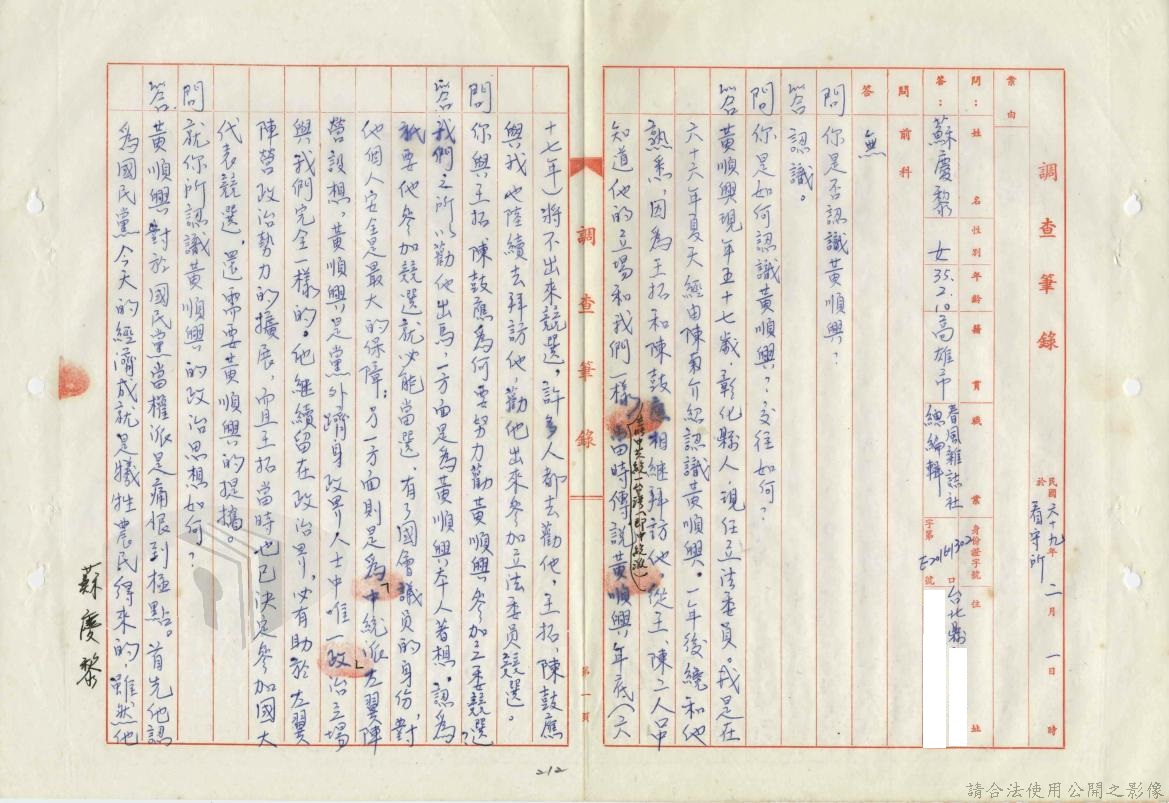 調查筆錄
民國六十九年二月1日 時
於看守所
案由
問：姓名 性別 年齡 籍貫 職業 身份證字號 住址
答：蘇慶黎 女 35.2.10 高雄市 春風雜誌社總編輯 字第 號 台北縣
問 前科
答 無
問 你是否認識黃順興？
答 認識。
問 你是如何認識黃順興？交往如何？
答 黃順興現年五十七歲，彰化縣人，現任立法委員。我是在
六十六年夏天經由陳菊介紹認識黃順興。一年後纔和他
熟悉，因為王拓和陳鼓應相繼拜訪他，從王、陳二人口中
知道他的立場和我們一樣（贊同中共統一台灣，即中統派）當時傳說黃順興年底（六
十七年）將不出來競選，許多人都去勸他，王拓、陳鼓應
與我也陸續去拜訪他，勸他出來參加立法委員競選。
問 你與王拓、陳鼓應為何要努力勸黃順興參加立委競選？
答 我們之所以勸他出馬，一方面是為黃順興本人著想，認為
祇要他參加競選就必能當選，有了國會議員的身份，對
他個人安全是最大的保障；另一方面則是為「中統派左翼陣
營設想，黃順興是黨外躋身政界人士中唯一政治立場
與我們完全一樣的。他繼續留在政治界，必有助於左翼
陳營政治勢力的擴展，而且王拓當時也已決定參加國大
代表競選，還需要黃順興的提攜。
問 就你所認識黃順興的政治思想如何？
答 黃順興對於國民黨當權派是痛恨到極點。首先他認
為國民黨今天的經濟成就是犧牲農民得來的，雖然他
蘇慶黎
調查筆錄
第一頁
212
請合法使用公開之影像